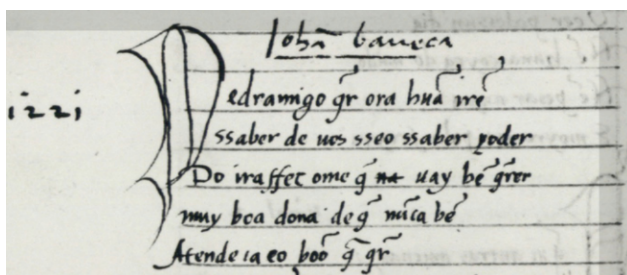 Johã baueca
1221
Pedramigo q̃r ora hũa rrẽ
ssaber de uos sseo ssaber poder
Do iraffec ome q̃ na uay bẽ q̃rer
muy boa dona de q̃ nũca bẽ
Atende ia eo boõ q̃ q̃r